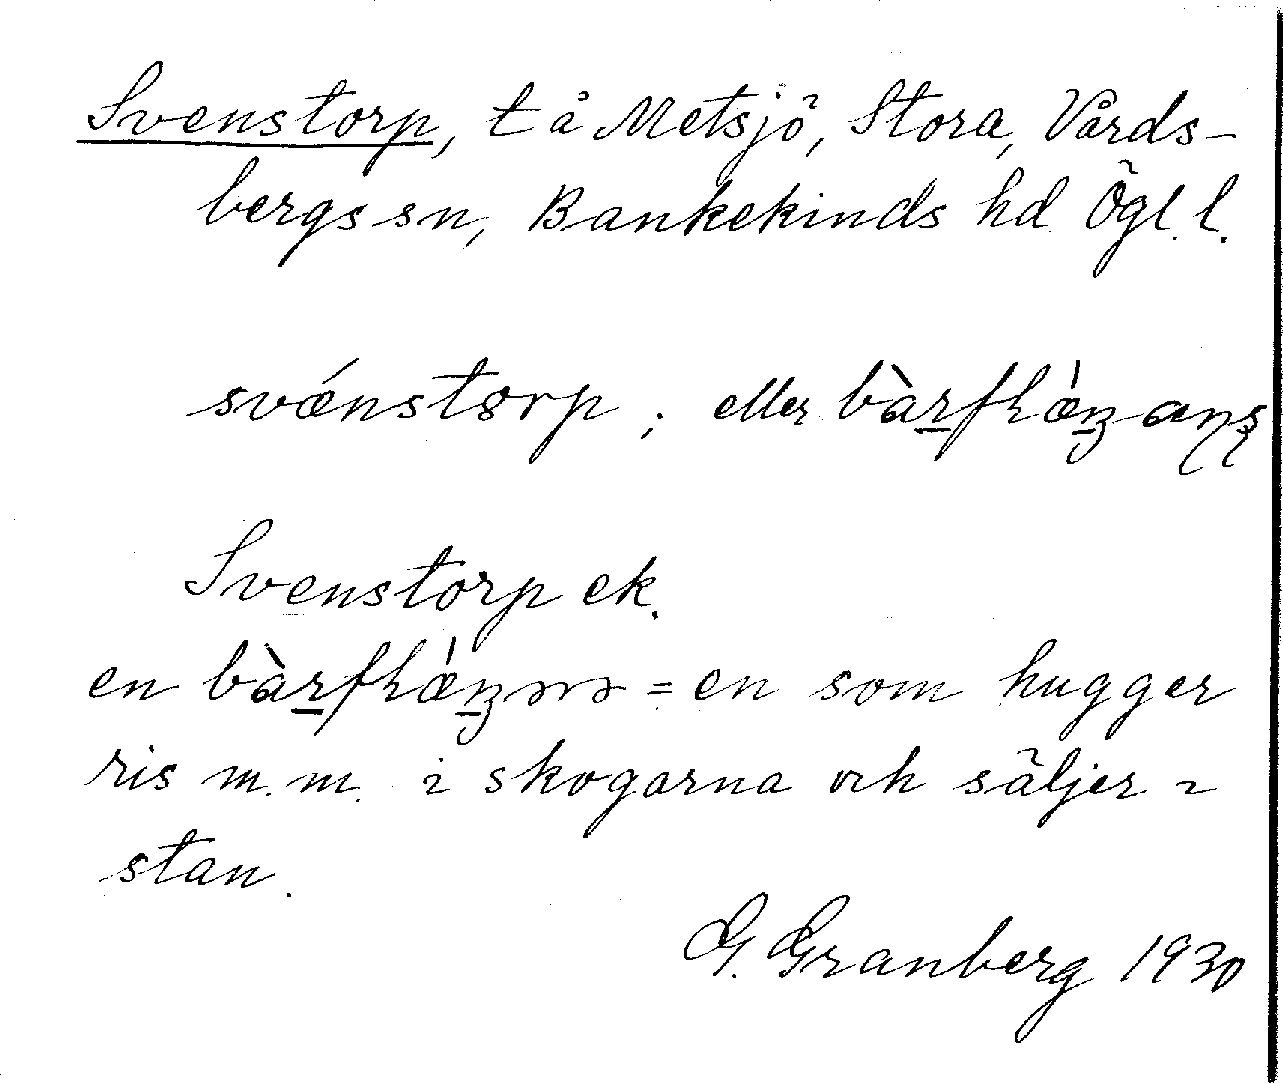 Svenstorp, t å Metsjö, Stora, Vårds-
bergs sn, Bankekinds hd Ögl. l.
svǽnstorp ; eller
Svenstorp ek.
en = en som hugger
ris m.m. i skogarna och säljer i
stan.
G. Granberg 1930